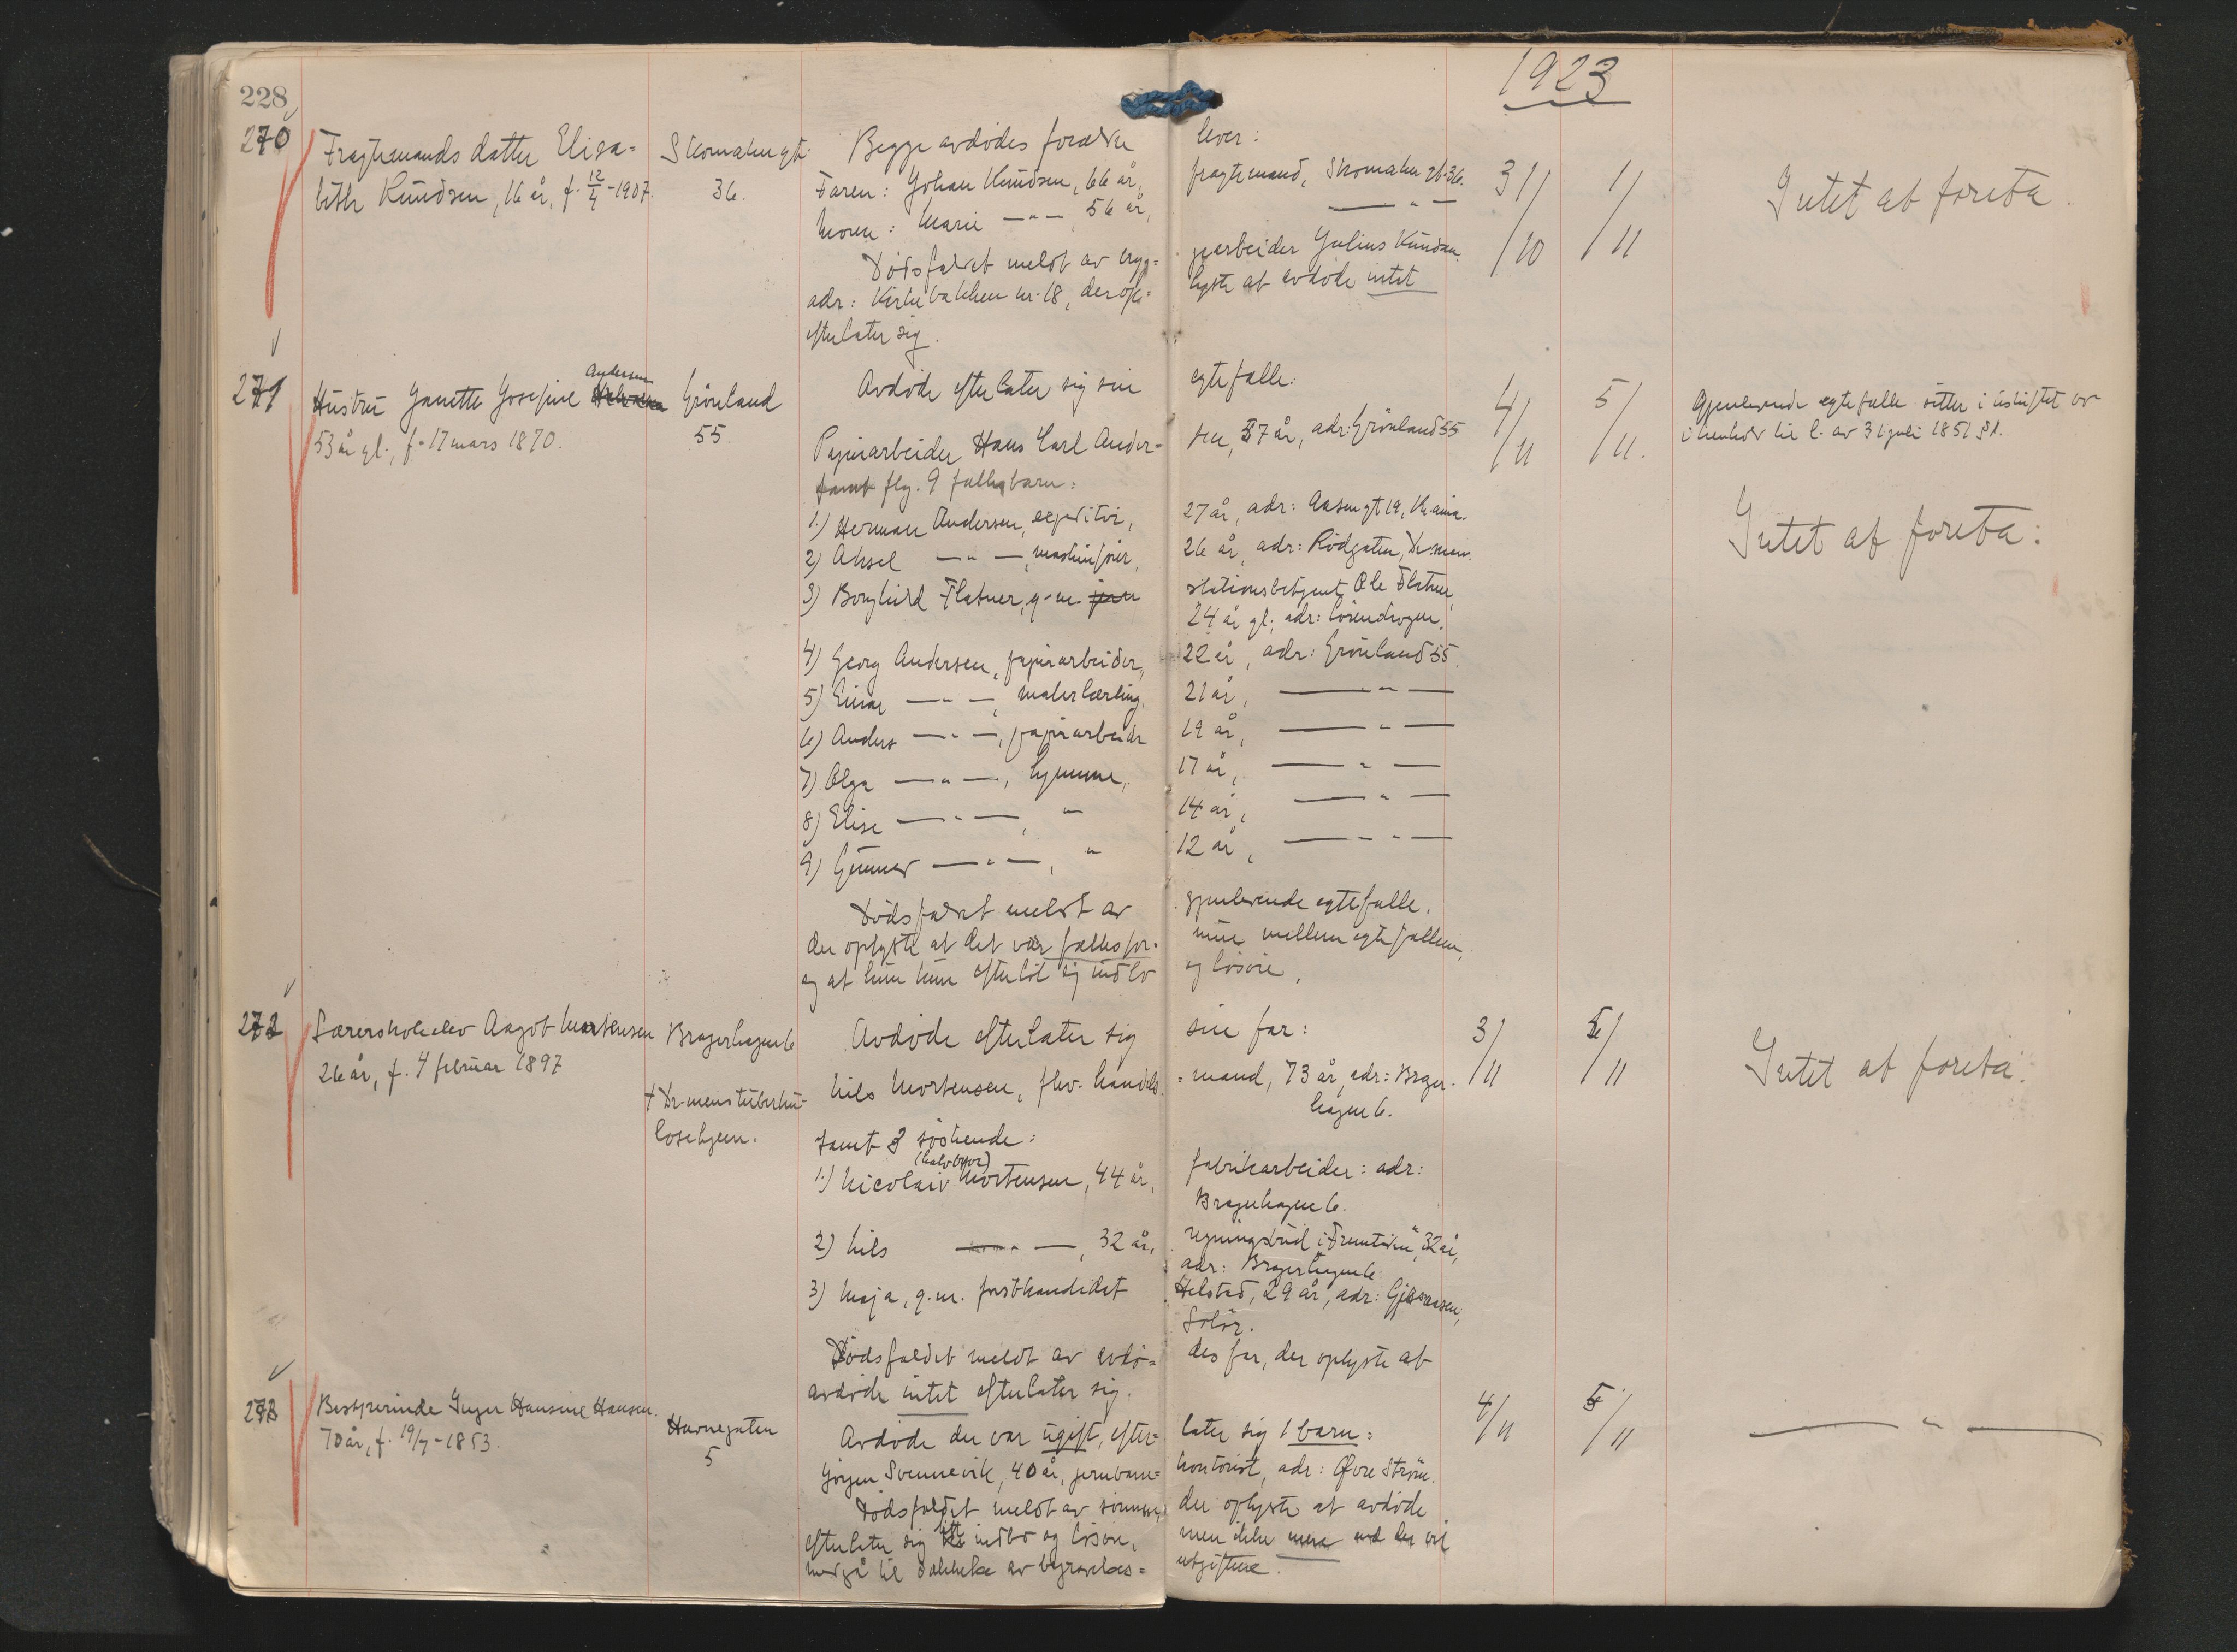 228
1923
270
Fragtemands datter Elisa=
beth Knudsen, 16 år, f. 12/4-1907.
Skomakergt.
36.
Begge avdødes forældre lever:
Faren: Johan Knudsen, 66 år, fragtemand, Skomakergt. 36.
Moren: Marie —"— 56 år, —"—
Dødsfaldet meldt av bryg=gearbeider Julius Knudsen
adr: Kirkebakken nr. 18, der op=lyste at avdøde intet
efterlater sig.
31/10
1/11
Intet at foreta.
271
Hustru Janette Josefine Andersen
53 år gl., f. 17 mars 1870.
Grønland
55.
Avdøde efterlater sig sin egtefælle:
Papirarbeider Hans Carl Ander=sen, 57 år, adr: Grønland 55
samt flg. 9 fælles barn:
1.) Herman Andersen, expeditør, 27 år, adr: Aasengt 19, Kr.ania.
2) Aksel —"—, maskinfører, 26 år, adr: Rødgaten, Dr.men.
3) Borghild Flatner, g.m. stationsbetjent Ole Flatner,
24 år gl., adr:
4) Georg Andersen, papirarbeider, 22 år, adr: Grønland 55.
5) Einar —"—, malerlærling, 21 år, —"—
6) Anders —"—, papirarbeider 19 år, —"—
7) Olga —"—, hjemme, 17 år, —"—
8) Elise —"—, " 14 år, —"—
9) Gunnar —"—, " 12 år, —"—
Dødsfaldet meldt av gjenlevende egtefælle.
der oplyste at det var fællesfor=mue mellem egtefællene,
og at hun kun efterlot sig indbo og løsøre.
4/11
5/11.
Gjenlevende egtefælle sitter i uskiftet bo
i henhold til l. av 31 juli 1851 § 1.
Intet at foreta:
272
Lærerskoleelev Aagot Mortensen
26 år, f. 4 februar 1897
Bragerhagen 6
† Dr.mens tuberku=
losehjem.
Avdøde efterlater sig sin far:
Nils Mortensen, fhv. handels=mand, 73 år, adr: Brager-
hagen 6.
samt 3 søskende:
(halvbror)
1.) Nicolai Mortensen, 44 år, fabrikarbeider: adr:
Bragerhagen 6.
2) Nils —"—, 32 år, regningsbud i "Fremtiden", 32 år,
adr: Bragerhagen 6
3) Maja, g.m. forstkandidat Helstad, 29 år, adr: Gjesaasen,
Solør.
Dødsfaldet meldt av avdø=des far, der oplyste at
avdøde intet efterlater sig.
3/11
5/11
Intet at foreta.
273
Bestyrerinde Inger Hansine Hansen.
70 år, f. 19/7-1853.
Havnegaten
5
Avdøde der var ugift, efter=later sig 1 barn:
Jørgen Svennevik, 40 år, jernbane=kontorist, adr: Øvre Strøm.
Dødsfaldet meldt av sønnen, der oplyste at avdøde
efterlater sig litt indbo og løsøre, men ikke mere end der vil
medgå til dækkelse av begravelses=utgiftene.
4/11
5/11
—"—